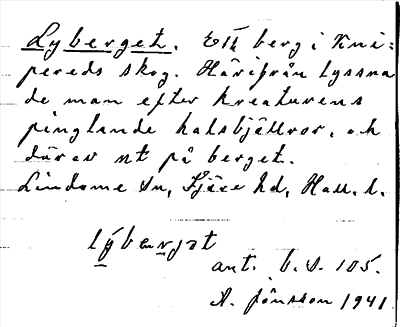 Lyberget. Ett berg i Kni-
pereds skog. Härifrån lyssna
de man efter kreaturens
pinglande halsbjällror, och
därav nt på berget.
Lindome sn, Fjäre hd, Hall. l.
lỳbærjat
ant. b. s. 105.
A. Jönsson 1941